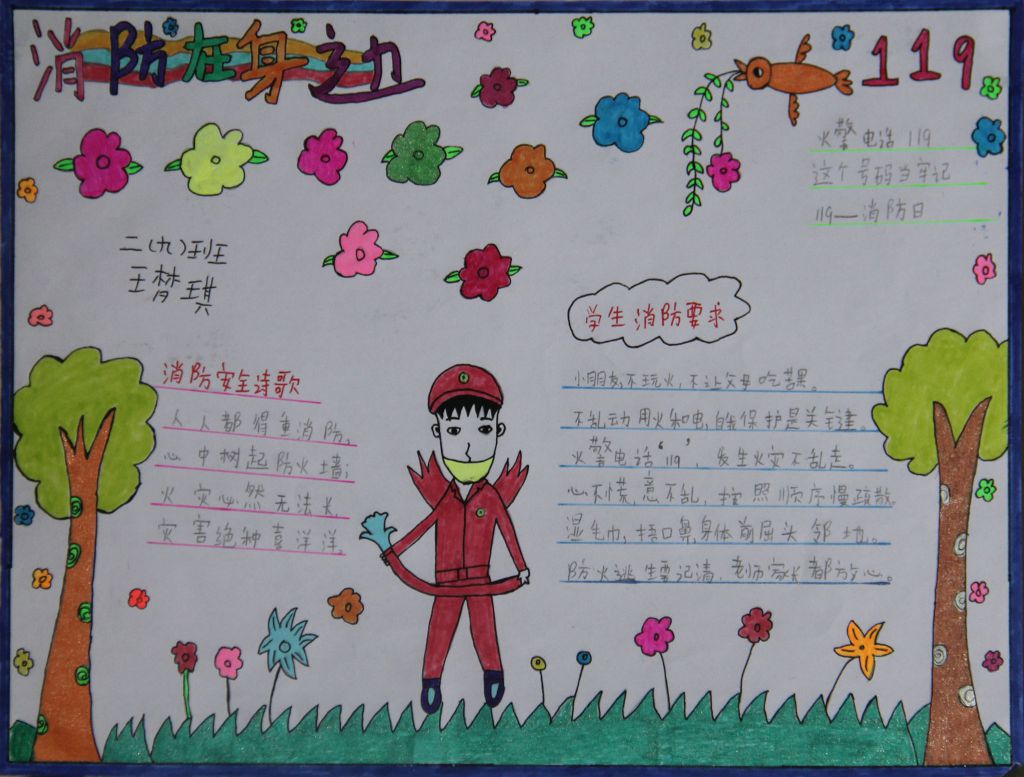 消防在身边
119
火警电话 119
这个号码当牢记
119—消防日
二(九)班
王梦琪
学生消防要求
小朋友,不玩火,不让父母吃苦果。
不乱动用火和电,自我保护是关键。
火警电话“119”,发生火灾不乱走。
心不慌,意不乱,按照顺序慢疏散
湿毛巾,捂口鼻,身体前屈头邻地。
防火逃生要记清,老师家长都放心。
消防安全诗歌
人人都得重消防,
心中树起防火墙;
火灾必然无法长,
灾害绝种喜洋洋。